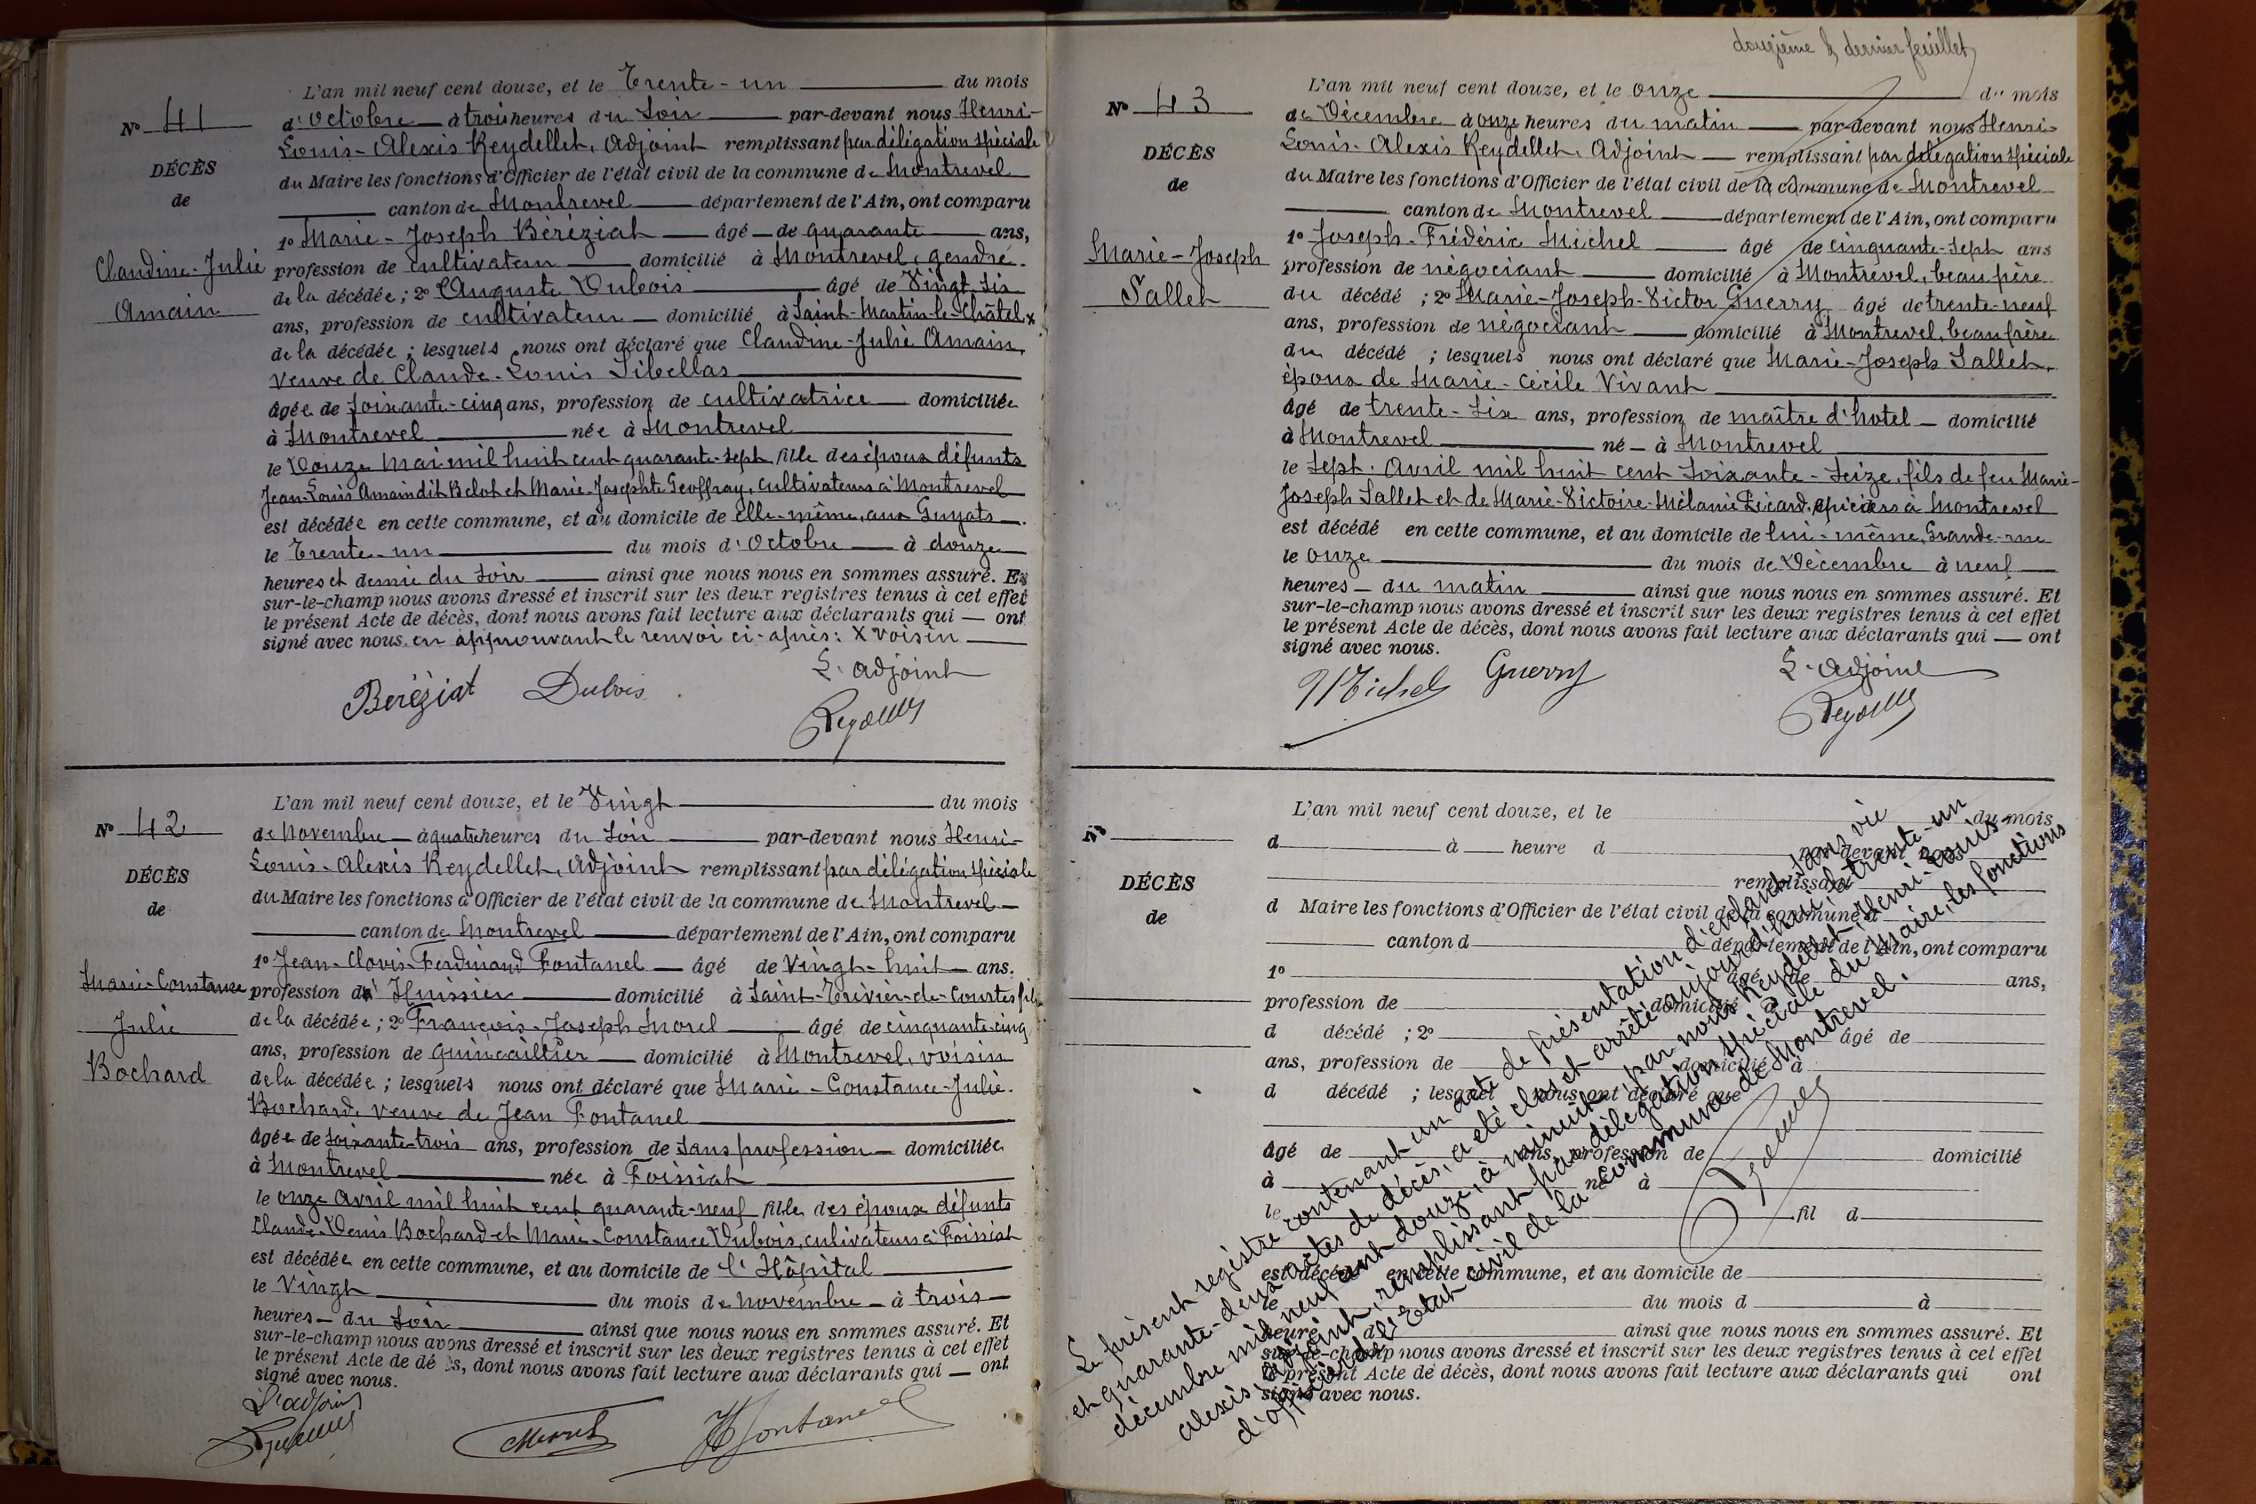 N° 41
DÉCÈS
de
Claudine-Julie
Amain
L'an mil neuf cent douze, et le Trente-un du mois
d'Octobre à trois heures du Soir par-devant nous Henri-
Louis-Alexis Reydellet, Adjoint remplissant par délégation spéciale
du Maire les fonctions d'Officier de l'état civil de la commune de Montrevel
canton de Montrevel département de l'Ain, ont comparu
1° Marie-Joseph Béréziat âgé de quarante ans,
profession de cultivateur domicilié à Montrevel, gendre
de la décédée; 2° Auguste Dubois âgé de Vingt six
ans, profession de cultivateur domicilié à Saint-Martin-le-Châtel x
de la décédée; lesquels nous ont déclaré que Claudine-Julie Amain,
veuve de Claude-Louis Sibellas
âgée de soixante-cinq ans, profession de cultivatrice domiciliée
à Montrevel née à Montrevel
le Douze Mai mil huit cent quarante-sept fille des époux défunts
Jean-Louis Amain dit Belot et Marie-Josephte Geoffray, cultivateurs à Montrevel
est décédée en cette commune, et au domicile de elle-même, aux Guyats
le Trente-un du mois d'Octobre à douze
heures et demie du soir ainsi que nous nous en sommes assuré. Et
sur-le-champ nous avons dressé et inscrit sur les deux registres tenus à cet effet
le présent Acte de décès, dont nous avons fait lecture aux déclarants qui ont
signé avec nous. en approuvant le renvoi ci-après: x voisin
L'adjoint
Béréziat Dubois
N° 42
DÉCÈS
de
Marie-Constance
Julie
Bochard
L'an mil neuf cent douze, et le Vingt du mois
de Novembre à quatre heures du soir par-devant nous Henri-
Louis-Alexis Reydellet, Adjoint remplissant par délégation spéciale
du Maire les fonctions d'Officier de l'état civil de la commune de Montrevel
canton de Montrevel département de l'Ain, ont comparu
1° Jean-Clovis-Ferdinand Fontanel âgé de Vingt-huit ans.
profession d'Huissier domicilié à Saint-Trivier-de-Courtes fils
de la décédée; 2° François-Joseph Morel âgé de cinquante-cinq
ans, profession de quincaillier domicilié à Montrevel, voisin
de la décédée; lesquels nous ont déclaré que Marie-Constance-Julie
Bochard, veuve de Jean Fontanel
âgée de soixante-trois ans, profession de sans profession domiciliée
à Montrevel née à Foissiat
le onze avril mil huit cent quarante-neuf fille des époux défunts
Claude-Denis Bochard et Marie-Constance Dubois, culivateurs à Foissiat
est décédée en cette commune, et au domicile de l'Hôpital
le Vingt du mois de Novembre à trois
heures du soir ainsi que nous nous en sommes assuré. Et
sur-le-champ nous avons dressé et inscrit sur les deux registres tenus à cet effet
le présent Acte de dé s, dont nous avons fait lecture aux déclarants qui ont
signé avec nous.
L'adjoint
Morel Fontanel
douzième & dernier feuillet
N° 43
DÉCÈS
de
Marie-Joseph
Sallet
L'an mil neuf cent douze, et le onze du mois
de Décembre à onze heures du matin par-devant nous Henri-
Louis-Alexis Reydellet, Adjoint remplissant par délégation spéciale
du Maire les fonctions d'Officier de l'état civil de la commune de Montrevel
canton de Montrevel département de l'Ain, ont comparu
1° Joseph-Frédéric Michel âgé de cinquante-sept ans
profession de négociant domicilié à Montrevel, beau père
du décédé; 2° Marie-Joseph-Victor Guerry âgé de trente-neuf
ans, profession de négociant domicilié à Montrevel, beau frère
du décédé; lesquels nous ont déclaré que Marie-Joseph Sallet,
époux de Marie-Cécile Vivant
âgé de trente-six ans, profession de maître d'hotel domicilié
à Montrevel né à Montrevel
le Sept Avril mil huit cent soixante-seize, fils de feu Marie-
Joseph Sallet et de Marie-Victoire-Mélanie Licard, épiciers à Montrevel
est décédé en cette commune, et au domicile de lui-même, Grande-rue
le onze du mois de Décembre à neuf
heures du matin ainsi que nous nous en sommes assuré. Et
sur-le-champ nous avons dressé et inscrit sur les deux registres tenus à cet effet
le présent Acte de décès, dont nous avons fait lecture aux déclarants qui ont
signé avec nous.
L'adjoint
Michel Guerry
N°
DÉCÈS
de
L'an mil neuf cent douze, et le du mois
d à heure d par-devant nous
remplissant
d Maire les fonctions d'Officier de l'état civil de la commune d
canton d département de l'Ain, ont comparu
1° âgé de ans,
profession de domicilié à
d décédé; 2° âgé de
ans, profession de domicilié à
d décédé; lesquel nous ont déclaré que
âgé de ans, profession de domicilié
à né à
le fil d
est décédé en cette commune, et au domicile de
le du mois d à
heure d ainsi que nous nous en sommes assuré. Et
sur-le-champ nous avons dressé et inscrit sur les deux registres tenus à cet effet
le présent Acte de décès, dont nous avons fait lecture aux déclarants qui ont
signé avec nous.
Le présent registre contenant un acte de présentation d'enfant sans vie
et quarante-deux actes de décès, a été clos et arrêté aujourd'hui, trente-un
décembre mil neuf cent douze, à minuit, par nous Reydellet, Henri-Louis-
Alexis, adjoint, remplissant par délégation spéciale du Maire, les fonctions
d'officier de l'Etat civil de la commune de Montrevel.